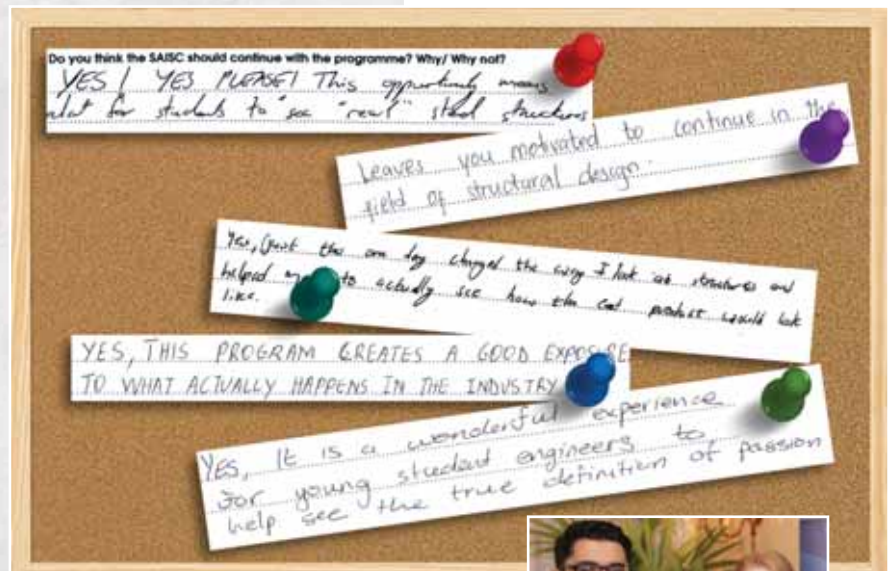 Do you think the SAISC should continue with the programme? Why/ Why not?
YES! YES PLEASE! This opportunity means
alot for students to "see "real" steel structures
Leaves you motivated to continue in the
field of structural design.
Yes, just this one day changed the way I look at structures and
helped me to actually see how the end product would look
like.
YES, THIS PROGRAM CREATES A GOOD EXPOSURE
TO WHAT ACTUALLY HAPPENS IN THE INDUSTRY
YES, It is a wonderful experience
for young student engineers to
help see the true definition of passion